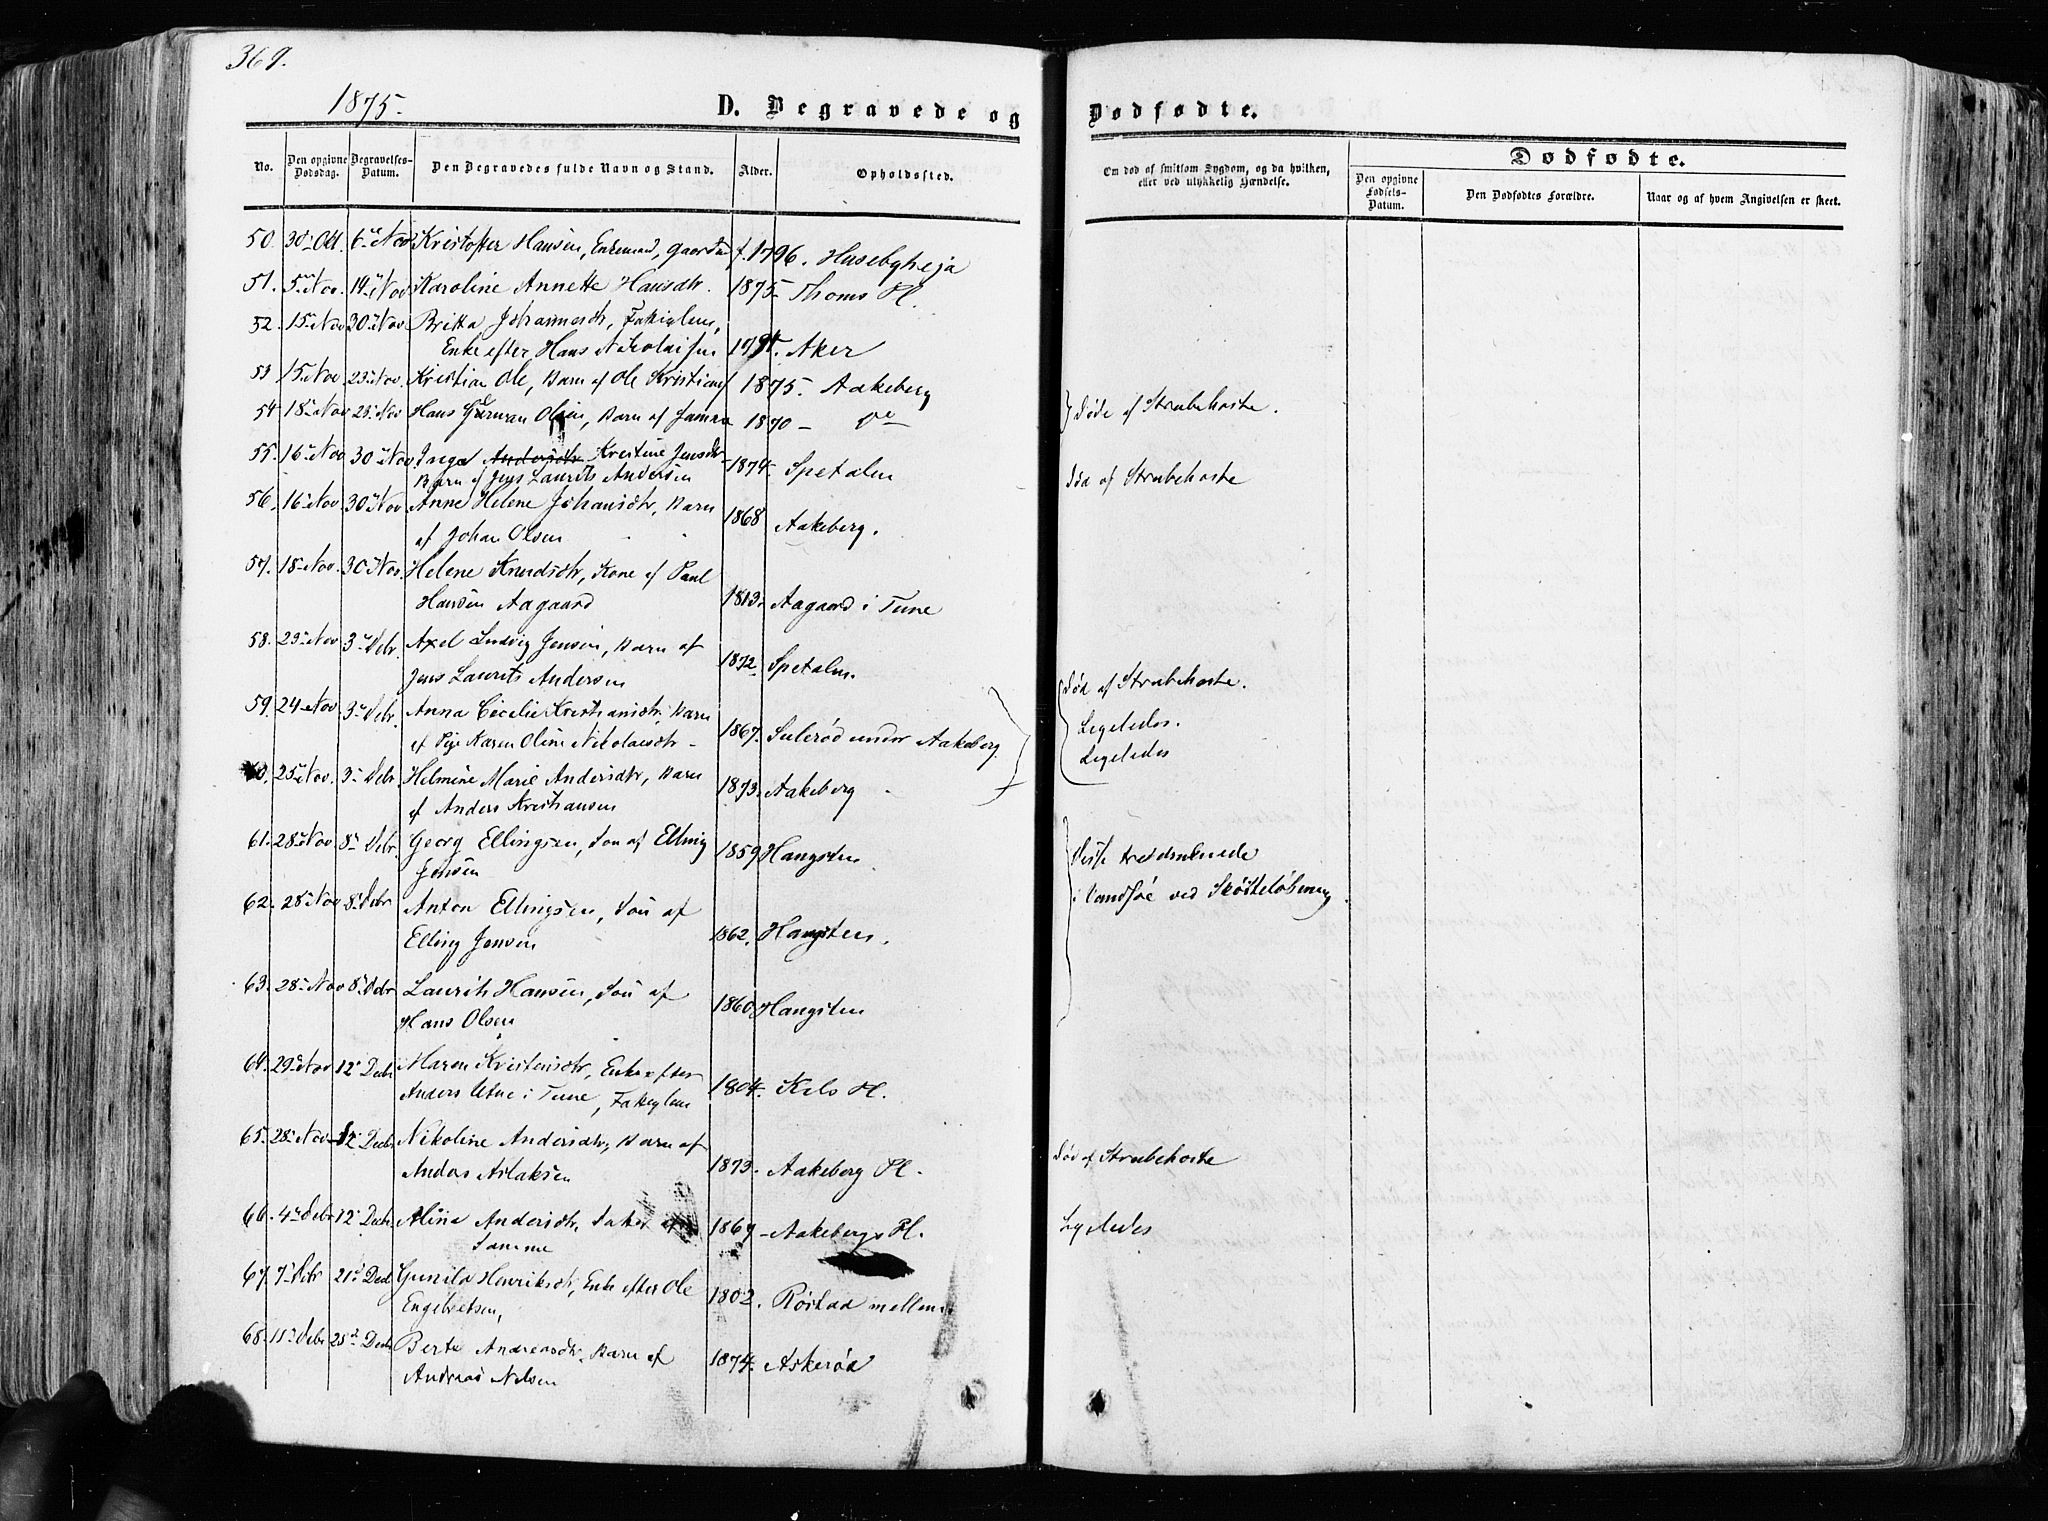 369.
1875.
D. Begravede og
Dødfødte.
No.
Den opgivne Dødsdag.
Begravelses-Datum.
Den Begravedes fulde Navn og Stand.
Alder.
Opholdssted.
Om død af smitsom Sygdom, og da hvilken, eller ved ulykkelig Hændelse.
Dødfødte.
Den opgivne Fødsels-Datum.
Den Dødfødtes Forældre.
Naar og af hvem Angivelsen er skeet.
50. 30 Okt. 6 Nov Kristoffer Hansen, Enkemand, f. 1796.
51. 5 Nov. 14 Nov Karoline Annette Hansdtr. 1875 Thoms Pl.
52. 15 Nov 30 Nov. Britta Johannesdtr, Fattiglem,
Enke efter Hans Nikolaisen Aker
53 15 Nov 23 Nov. Kristian Ole, Barn af Ole Kristians 1875. Aakeberg
54 18 Nov 23 Nov Hans Olsen, Barn af Samme 1870 - Do
} Døde af Strubehoste.
55. 16 Nov 30 Nov Inga Andersdtr Kristine Jensdtr
Barn af Jens Laurits Andersen 1874. Spetalen
Død af Strubehoste
56. 16 Nov. 30 Nov Anne Helene Johansdtr, Barn
af Johan Olsen 1868 Aakeberg.
57. 18 Nov. 30 Nov. Helene Knudsdtr, Kone af Paul
Hansen Aagaard 1813. Aagaard i Tune
58. 23 Nov 3 Debr. Axel Ludvig Jensen, Barn af
Jens Laurits Andersen 1872. Spetalen.
Død af Strubehoste.
59. 24 Nov 3 Debr. Anna Cecilie Kristiansdtr. Barn
af Pige Karen Oline Nikolaisdtr 1867. Sulerød under Aakeberg.
Ligeledes.
60. 25 Nov. 3 Debr. Helmine Marie Andersdtr, Barn
af Anders Kristiansen 1873. Aakeberg
Ligeledes
61. 28 Nov. 8 Debr. Georg Ellingsen, Søn af Elling
Jensen 1859 Hangsten
Disse tre druknede
i Vandsøe ved
62. 28 Nov 8 Debr Anton Ellingsen, Søn af
Elling Jensen 1862. Hangsten.
63. 28 Nov 8 Debr Laurits Hansen, Søn af
Hans Olsen 1860. Hangsten
64. 29 Nov 12 Decbr Maren Kristensdtr, Enke efter
Anders i Tune, Fattiglem 1804. Kilo Pl.
65. 28 Nov 12 Decbr Nikoline Andersdtr, Barn af
Anders Aslaksen 1873. Aakeberg Pl.
Død af Strubehoste
66. 4 Debr 12 Decbr Alina Andersdtr, Datter af
Samme 1869 - Aakebergs Pl.
Ligeledes
67. 7 Debr 21 Decbr Gunild Henriksdtr, Enke efter Ole
Engebretsen, 1802. Røstad mellem
68. 11 Debr 28 Decbr Berte Andreasdtr. Barn af
Andreas Nilsen 1874. Askerød